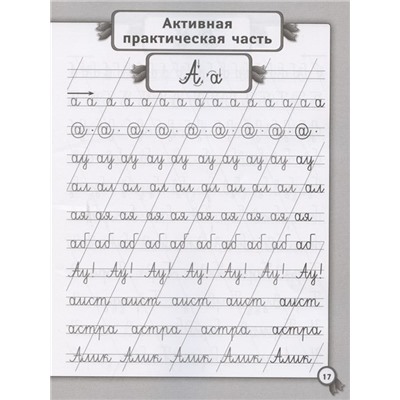 Активная
практическая часть
А, а
а а а а а а а а а а а а а а а
@ · @ · @ · @ · @ · @ · @ · @ ·
ау ау ау ау ау ау ау ау ау ау
ал ал ал ал ал ал ал ал ал ал
ая ая ая ая ая ая ая ая ая ая
аб аб аб аб аб аб аб аб аб аб
Ау! Ау! Ау! Ау! Ау! Ау! Ау!
аист аист аист аист аист
астра астра астра астра
Алик Алик Алик Алик Алик
17